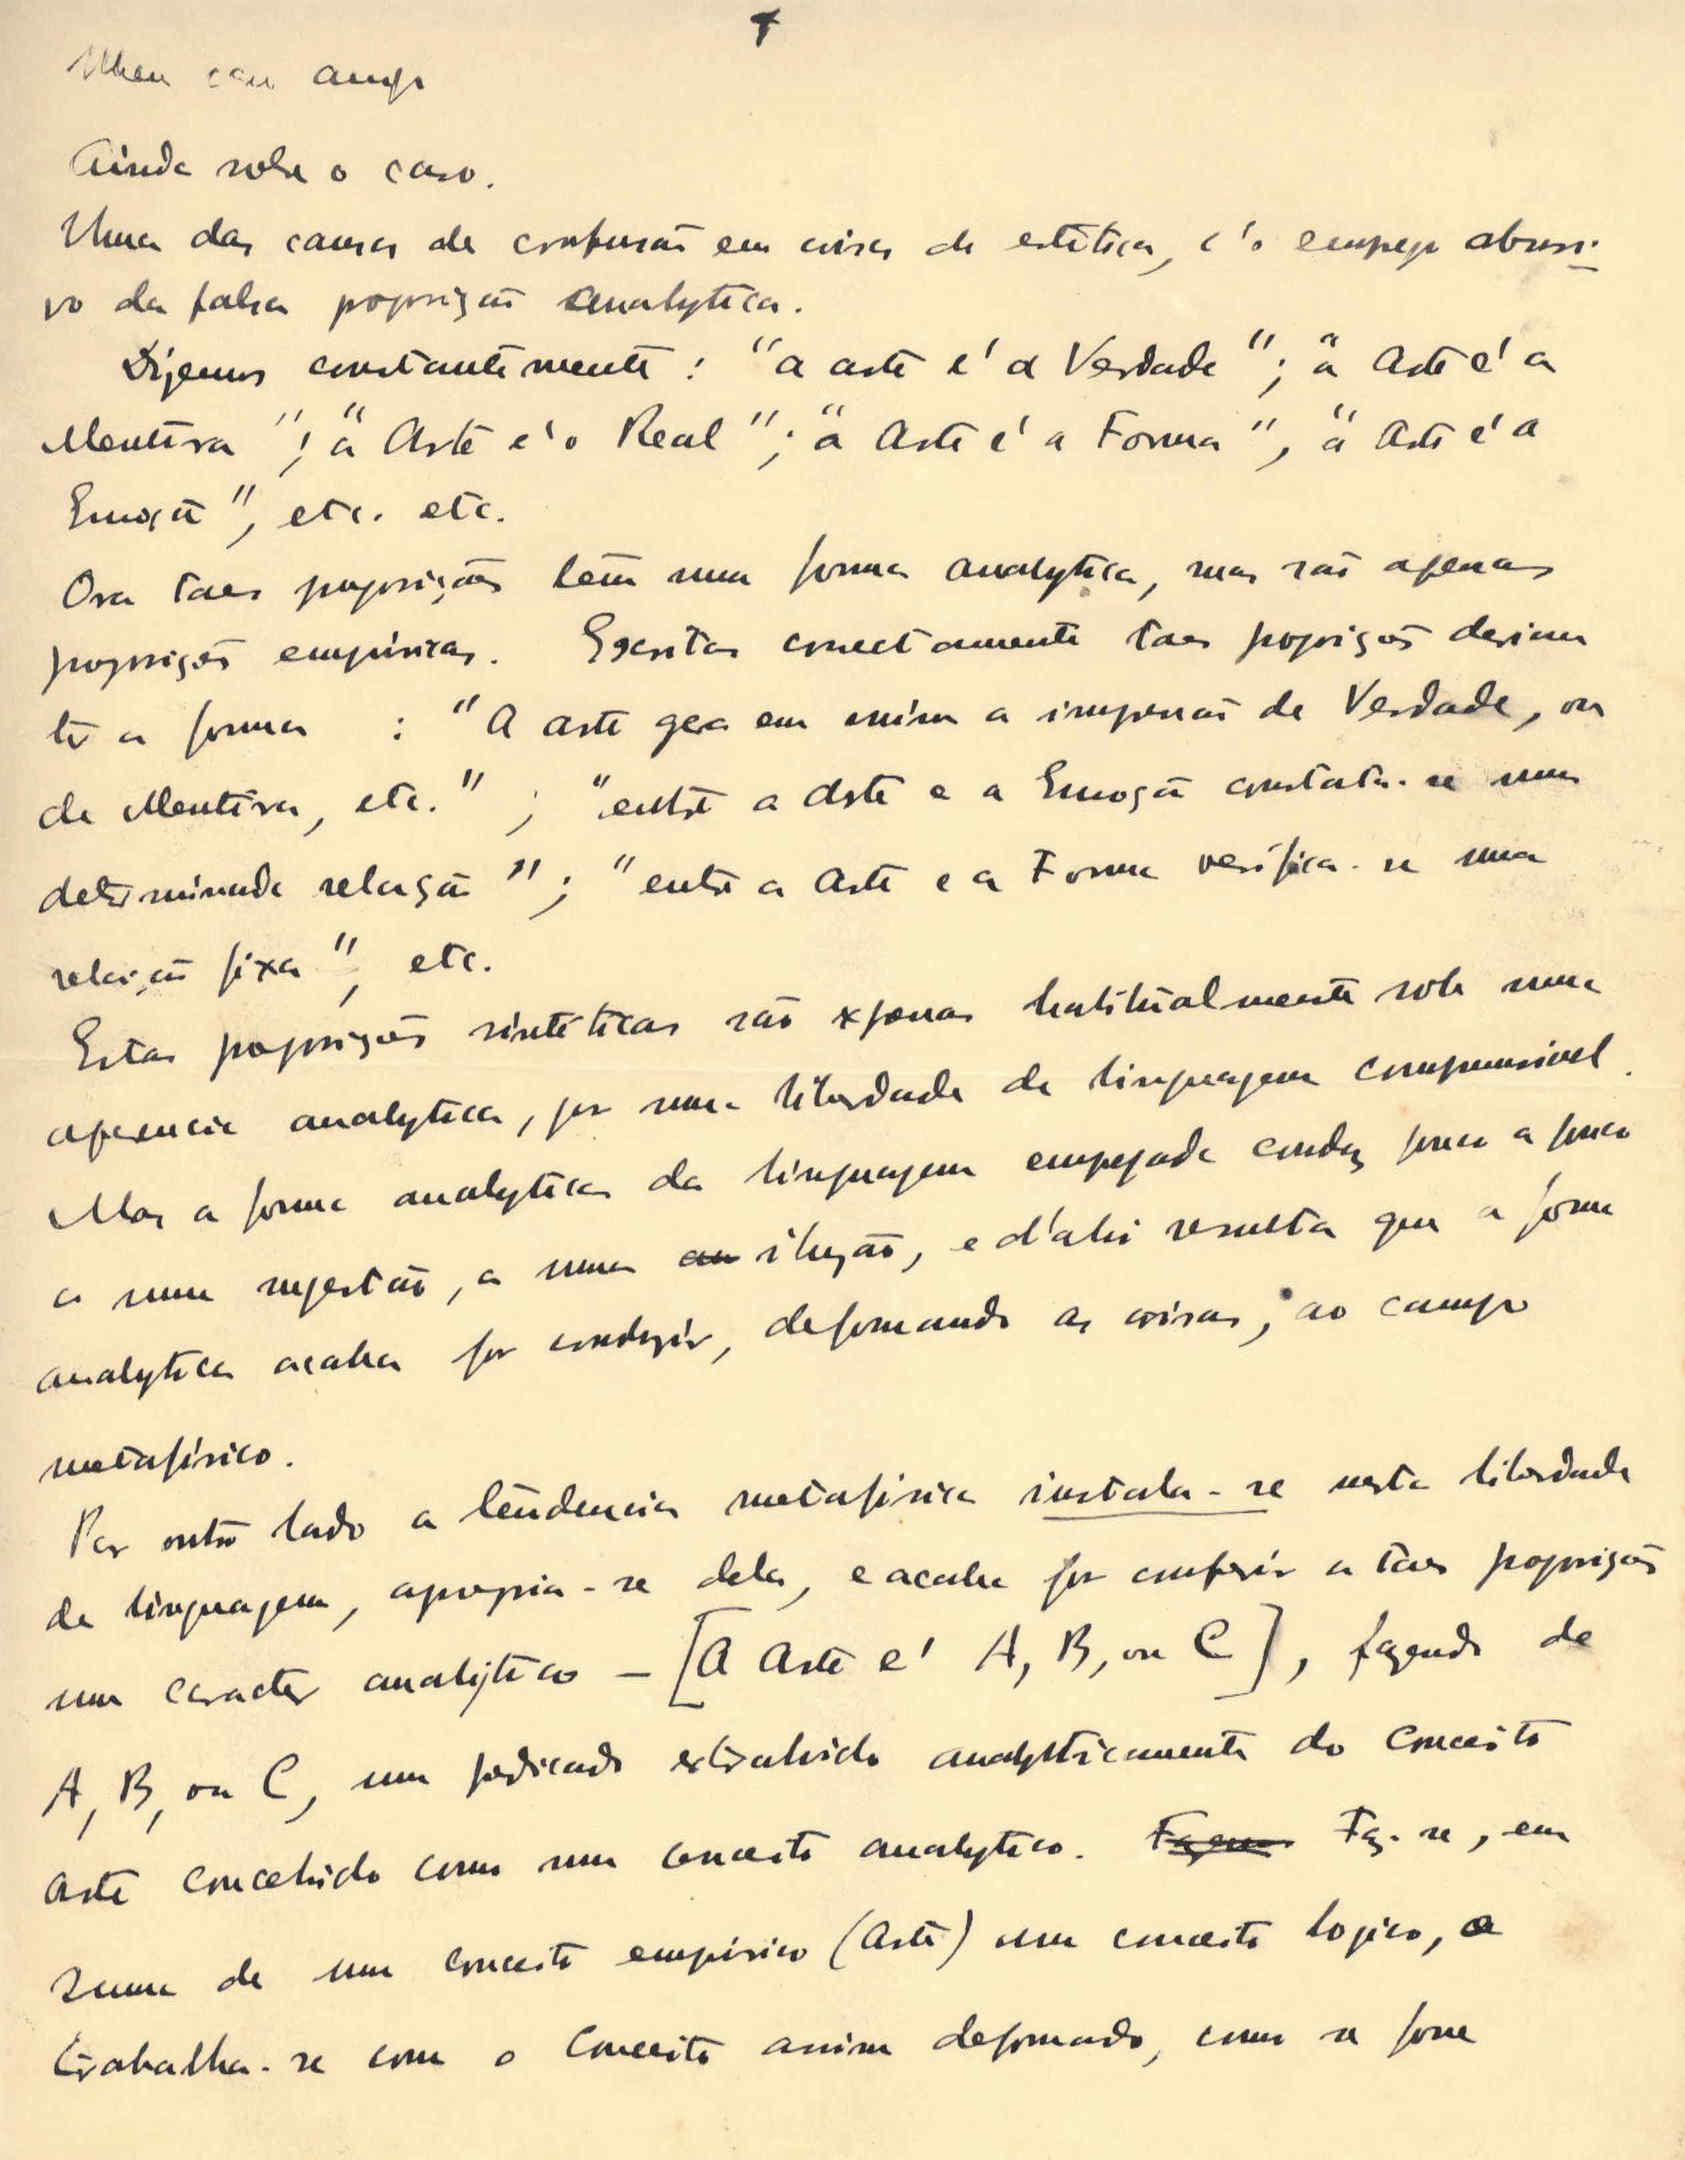 Meu caro amigo
Ainda sobre o caso.
Uma das causas de confusão em coisas de estética, é o emprego abusi-
vo da falsa proposição analytica.
Dizemos constantemente: "a arte é a Verdade"; "a Arte é a
Mentira"; "a Arte é o Real"; "a Arte é a Forma", "a Arte é a
Emoção", etc. etc.
Ora taes proposições têm uma forma analytica, mas são apenas
proposições empíricas. Escritas correctamente taes proposições deviam
ter a forma : "A arte gera em mim a impressão de Verdade, ou
de Mentira, etc." ; "entre a Arte e a Emoção constata-se uma
determinada relação"; "entre a Arte e a Forma verifica-se uma
relação fixa", etc.
Estas proposições sintéticas são expressas habitualmente sob uma
aparencia analytica, por uma liberdade de linguagem compreensivel.
Mas a forma analytica da linguagem empregada conduz pouco a pouco
a uma sugestão, a uma ilusão, e d'ahi resulta que a forma
analytica acaba por conduzir, deformando as coisas, ao campo
metafísico.
Por outro lado a tendencia metafísica instala-se nesta liberdade
de linguagem, apropria-se dela, e acaba por conferir a taes proposições
um caracter analýtico – [A Arte é A, B, ou C], fazendo de
A, B, ou C, um predicado extrahido analytticamente do conceito
arte concebido como um conceito analytico. Faz-se, em
suma de um conceito empírico (Arte) um conceito logico, e
trabalha-se com o conceito assim deformado, como se fosse